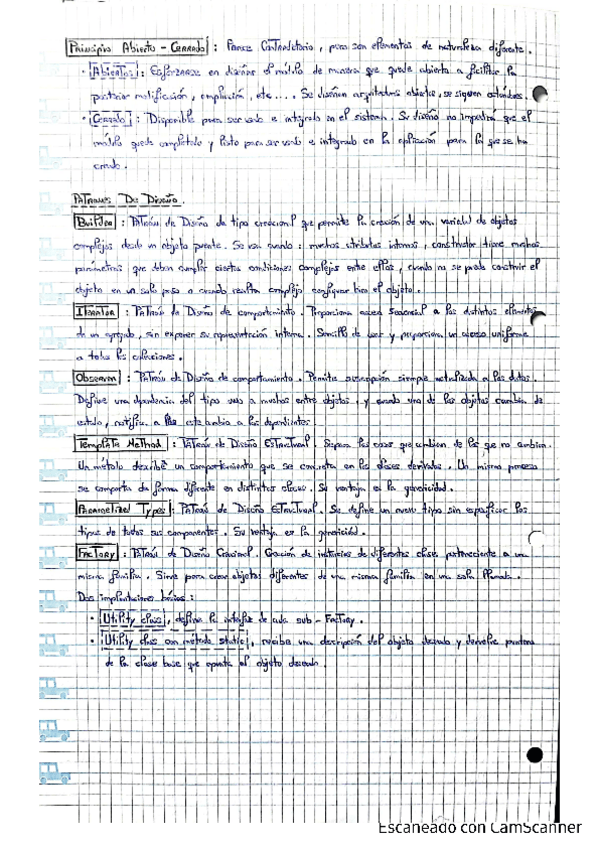 Principio Abierto - Cerrado : Parece Contradictorio, pero son elementos de naturaleza diferente.
· Abierto : Esforzarse en diseñar el módulo de manera que quede abierto a facilitar la
posterior modificación, ampliación, etc.... Se diseñan arquitecturas abiertas, se siguen estándares.
· Cerrado : Disponible para ser usado e integrado en el sistema. Su diseño no impedirá que el
módulo quede completado y listo para ser usado e integrado en la aplicación para la que se ha
creado.
Patrones De Diseño.
Builder : Patrón de Diseño de tipo creacional que permite la creación de una variedad de objetos
complejos desde un objeto fuente. Se usa cuando : muchos atributos internos, constructor tiene muchos
parámetros que deben cumplir ciertas condiciones complejas entre ellas, cuando no se puede construir el
objeto en un solo paso o cuando resulta complejo configurar bien el objeto.
Iterator : Patrón de Diseño de comportamiento. Proporciona acceso secuencial a los distintos elementos
de un agregado, sin exponer su representación interna. Sencillo de usar y proporciona un acceso uniforme
a todas las colecciones.
Observer : Patrón de Diseño de comportamiento. Permite suscripción siempre actualizada a los datos.
Define una dependencia del tipo uno a muchos entre objetos, y cuando uno de los objetos cambia de
estado, notifica a los este cambio a los dependientes.
Template Method : Patrón de Diseño Estructural. Separa las cosas que cambian de las que no cambian.
Un método describe un comportamiento que se concreta en las clases derivadas. Un mismo proceso
se comporta de forma diferente en distintas clases. Su ventaja es la genericidad.
Parametrized Types : Patrón de Diseño Estructural. Se define un nuevo tipo sin especificar los
tipos de todos sus componentes. Su ventaja es la genericidad.
Factory : Patrón de Diseño Creacional. Creación de instancias de diferentes clases pertenecientes a una
misma familia. Sirve para crear objetos diferentes de una misma familia en una sola llamada.
Dos implementaciones básicas :
· Utility class, define la interfaz de cada sub-Factory.
· Utility class con método static, recibe una descripción del objeto deseado y devuelve puntero
de la clase base que apunta al objeto deseado.
Escaneado con CamScanner